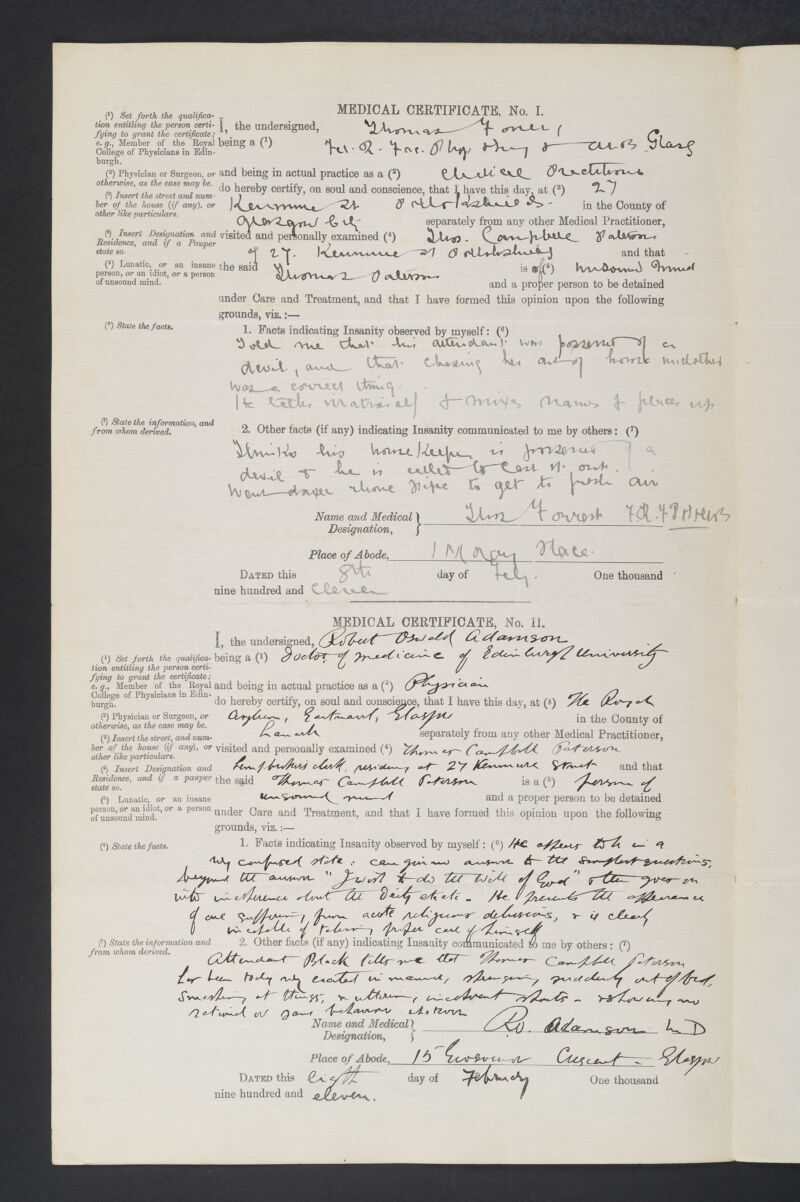 MEDICAL CERTIFICATE, No. I.
(1) Set forth the qualifica-
tion entitling the person certi-
fying to grant the certificate;
e.g., Member of the Royal
College of Physicians in Edin-
burgh.
I, the undersigned, Thomas Forrest
being a (1) Fel. R. Fac. Phys Surg & M.B. Glasg
(2) Physician or Surgeon, or
otherwise, as the case may be.
and being in actual practice as a (2) Medical Practitioner
(3) Insert the street and num-
ber of the house (if any), or
other like particulars.
do hereby certify, on soul and conscience, that I have this day, at (3) 27
Kenmure St Pollokshields. in the County of
Glasgow City separately from any other Medical Practitioner,
(4) Insert Designation and
Residence, and if a Pauper
state so.
visited and personally examined (4) Thos. Campbell Paterson
of 27. Kenmure St Pollokshields and that
(5) Lunatic, or an insane
person, or an idiot, or a person
of unsound mind.
the said Thomas Paterson is of (5) unsound mind
and a proper person to be detained
under Care and Treatment, and that I have formed this opinion upon the following
grounds, viz.:—
(6) State the facts.
1. Facts indicating Insanity observed by myself: (6)
Told me that his attendant was possessed of a
devil, and that chasing her out of house
was a correct thing.
He talks & mixes names of places up
(7) State the information, and
from whom derived.
2. Other facts (if any) indicating Insanity communicated to me by others: (7)
Thinks his housekeeper is possessed of a
devil & he is called to cast it out.
Went down rhone pipe to get to fresh air
Name and Medical Designation, Thos Forrest
Place of Abode, 1 Moray Place.
DATED this 8th day of Feby. One thousand
nine hundred and eleven
MEDICAL CERTIFICATE, No. II.
I, the undersigned, Robert Oswald Adamson
(1) Set forth the qualifica-
tion entitling the person certi-
fying to grant the certificate;
e.g., Member of the Royal
College of Physicians in Edin-
burgh.
being a (1) Doctor of medicine of Edinburgh University
and being in actual practice as a (2) Physician
(2) Physician or Surgeon, or
otherwise, as the case may be.
do hereby certify, on soul and conscience, that I have this day, at (3) The Royal
Asylum, Gartnavel, Glasgow in the County of
(3) Insert the street, and num-
ber of the house (if any), or
other like particulars.
Lanark separately from any other Medical Practitioner,
visited and personally examined (4) Thomas Campbell Paterson
(4) Insert Designation and
Residence, and if a pauper
state so.
clerk, residing at 27 Kenmure Street and that
the said Thomas Campbell Paterson is a (5) person of
(5) Lunatic, or an insane
person, or an idiot, or a person
of unsound mind.
unsound mind and a proper person to be detained
under Care and Treatment, and that I have formed this opinion upon the following
grounds, viz.:—
(6) State the facts.
1. Facts indicating Insanity observed by myself: (6) He appears to be in a
very confused state: can give no answer to the simplest questions,
beyond the answer "I wish to do the Will of God" & then goes on
into incoherence about the Deity etc etc. He presents the appearance
of one suffering from acute religious delusions, & is clearly
incapable of taking proper care of himself
(7) State the information and
from whom derived.
2. Other facts (if any) indicating Insanity communicated to me by others: (7)
Attendant Black tells me that Thomas Campbell Paterson
has been today very excited in manner, springing suddenly out of bed,
smashing at things, & uttering incoherent shouts & showing no
rational or sane behaviour whatever
Name and Medical Designation, Ro. Adamson M D
Place of Abode, 15 Grosvenor Crescent Glasgow
DATED this eighth day of February One thousand
nine hundred and eleven.